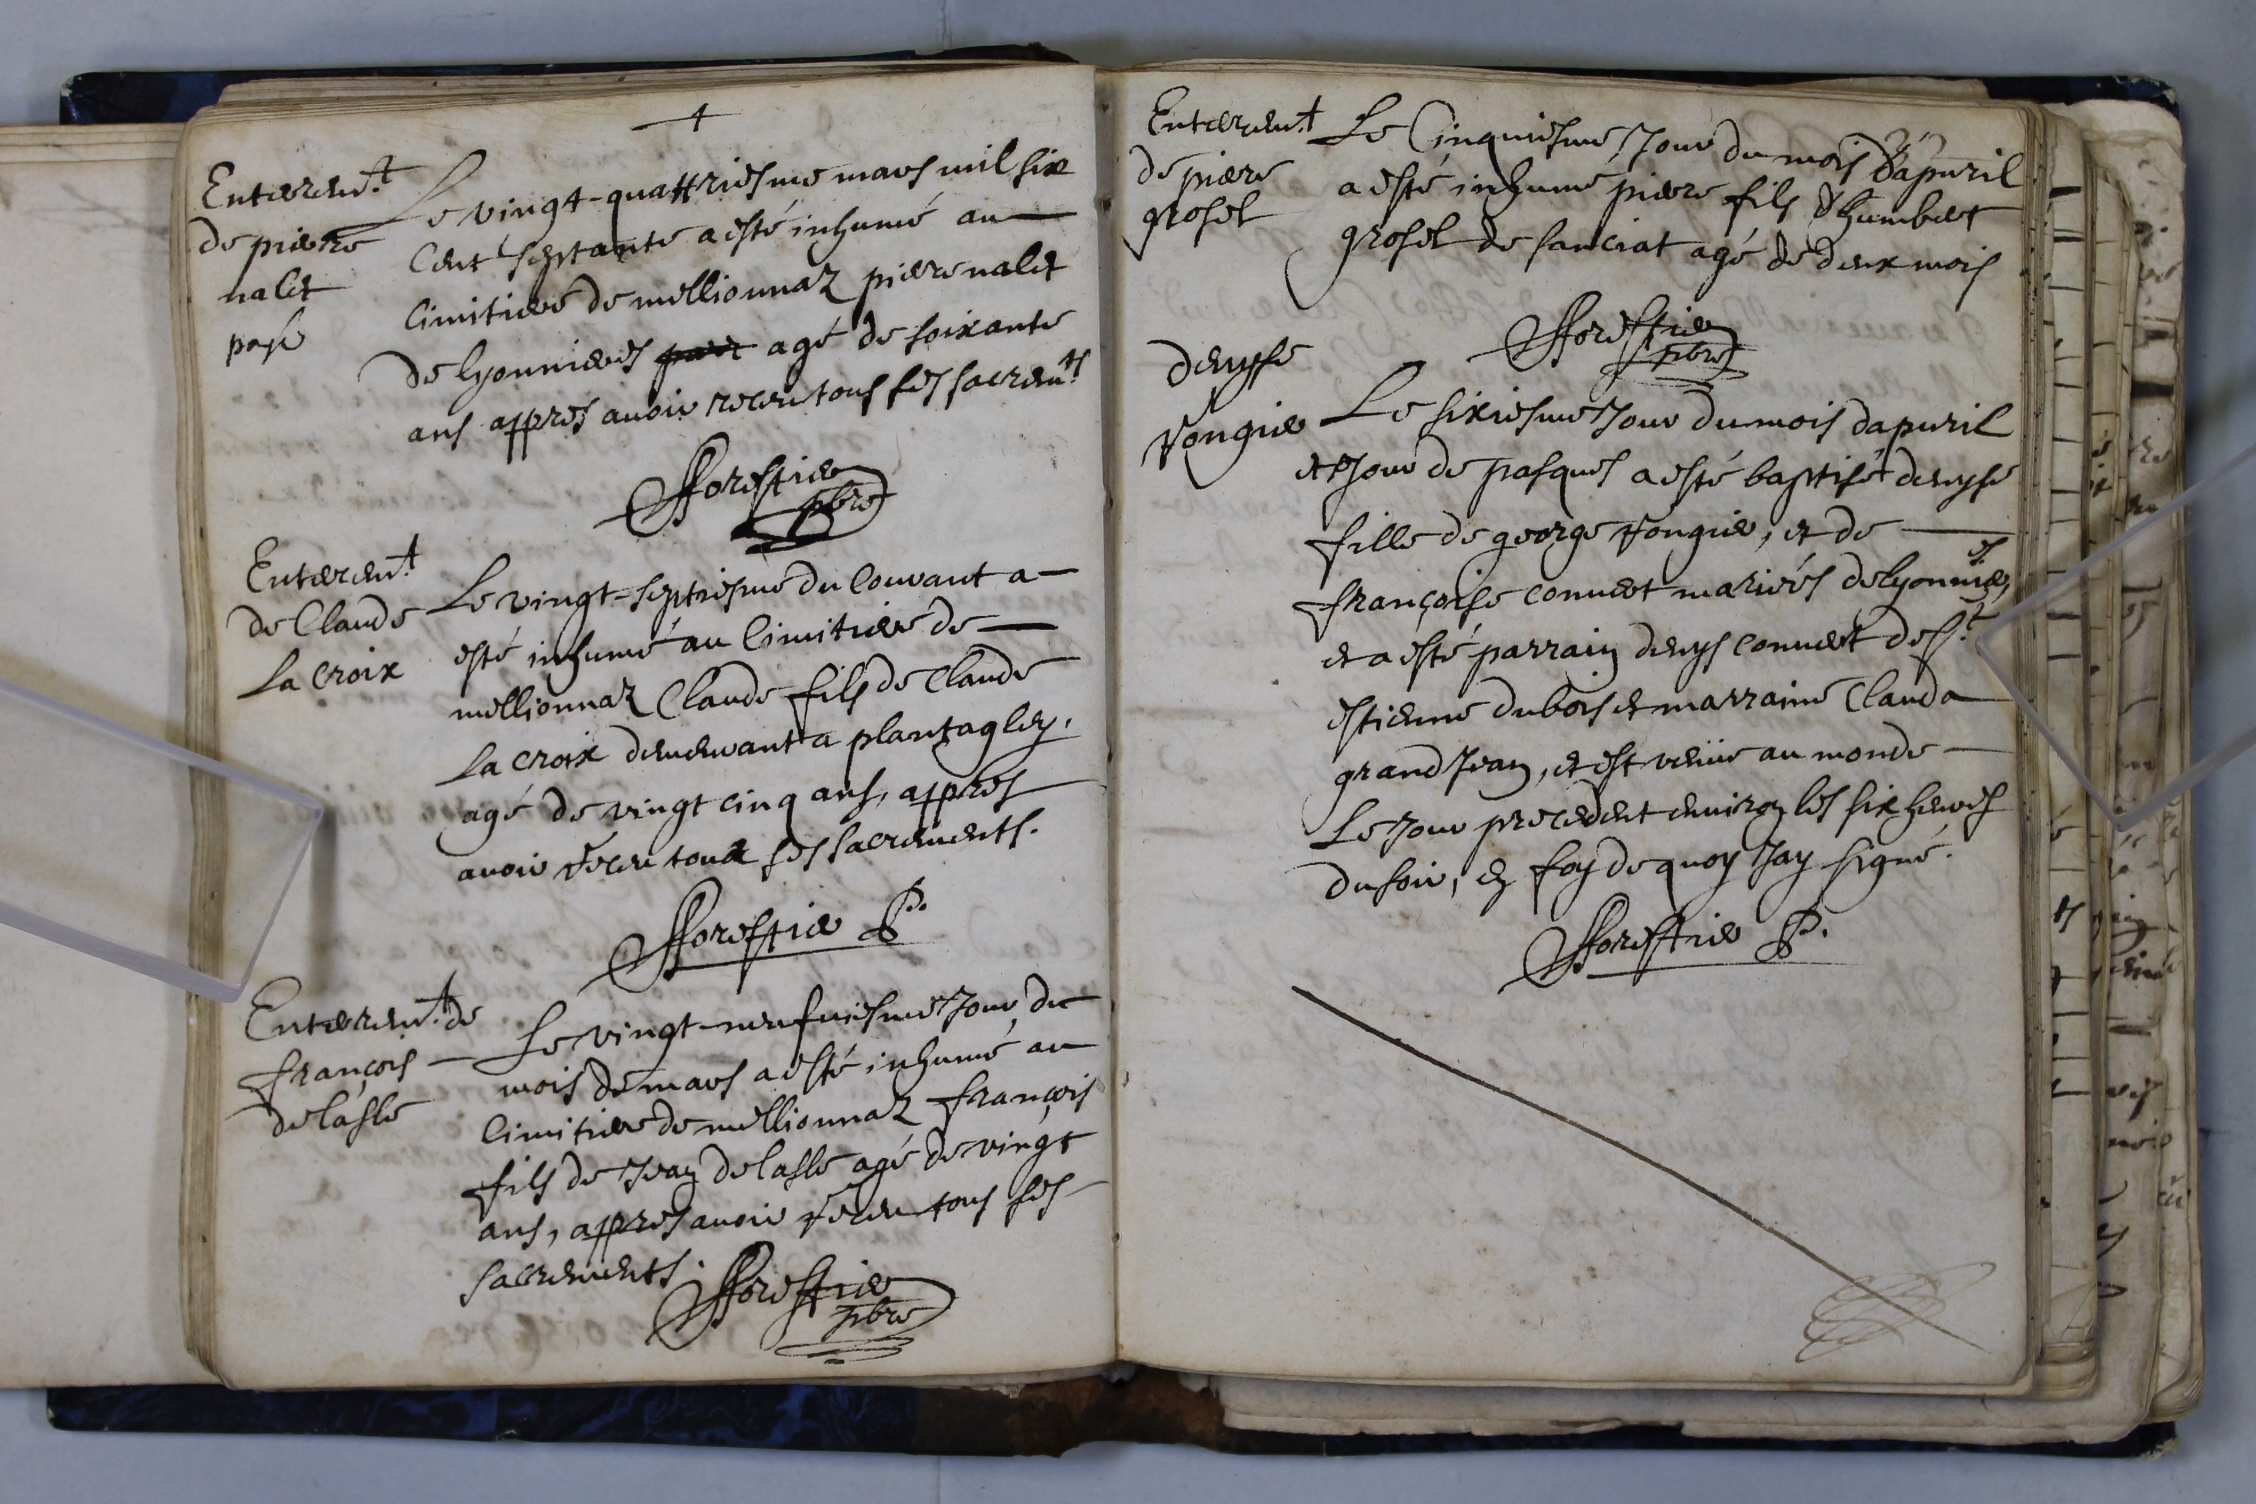 4
Enterem.t
de pierre
nalet
paye
Le vingt-quattriesme mars mil six
cent septante a esté inhumé au
cimitiere de mellionnaz piere nalet
de lyonnieres agé de soixante
ans appres avoir receu tous ses sacrem.ts
fforestier
pbre
Enterem.t
de Claude
La Croix
Le vingt-septiesme du Courant a
esté inhumé au Cimitiere de
mellionnaz Claude fils de Claude
La Croix demeurant a plantagley,
agé de vingt cinq ans, appres
avoir receu tous ses sacrements.
fforestier P.
Enterem.t de
françois
delasle
Le vingt-neufuiesme Jour du
mois de mars a esté inhumé au
Cimitiere de mellionnaz françois
fils de Jean delasle agé de vingt
ans, appres avoir receu tous ses
sacrements.
fforestier
pbre
Enterem.t
de piere
grosel
Le Cinquiesme Jour du mois d'apuril
a esté inhumé piere fils d'humbert
grosel de sanciat agé de deux mois
fforestier
pbre
denyse
Vongier
Le sixiesme Jour du mois dapuril
et Jour de pasques a esté baptisée denyse
fille de george Vongier, et de
françoise conuert mariés de lyonnieres,
et a esté parrain denys conuert de s.t
estienne dubois et marraine Clauda
grand Jean, et est venüe au monde
Le Jour precedent environ les six heures
du soir, en foy de quoy Jay signé.
fforestier P.